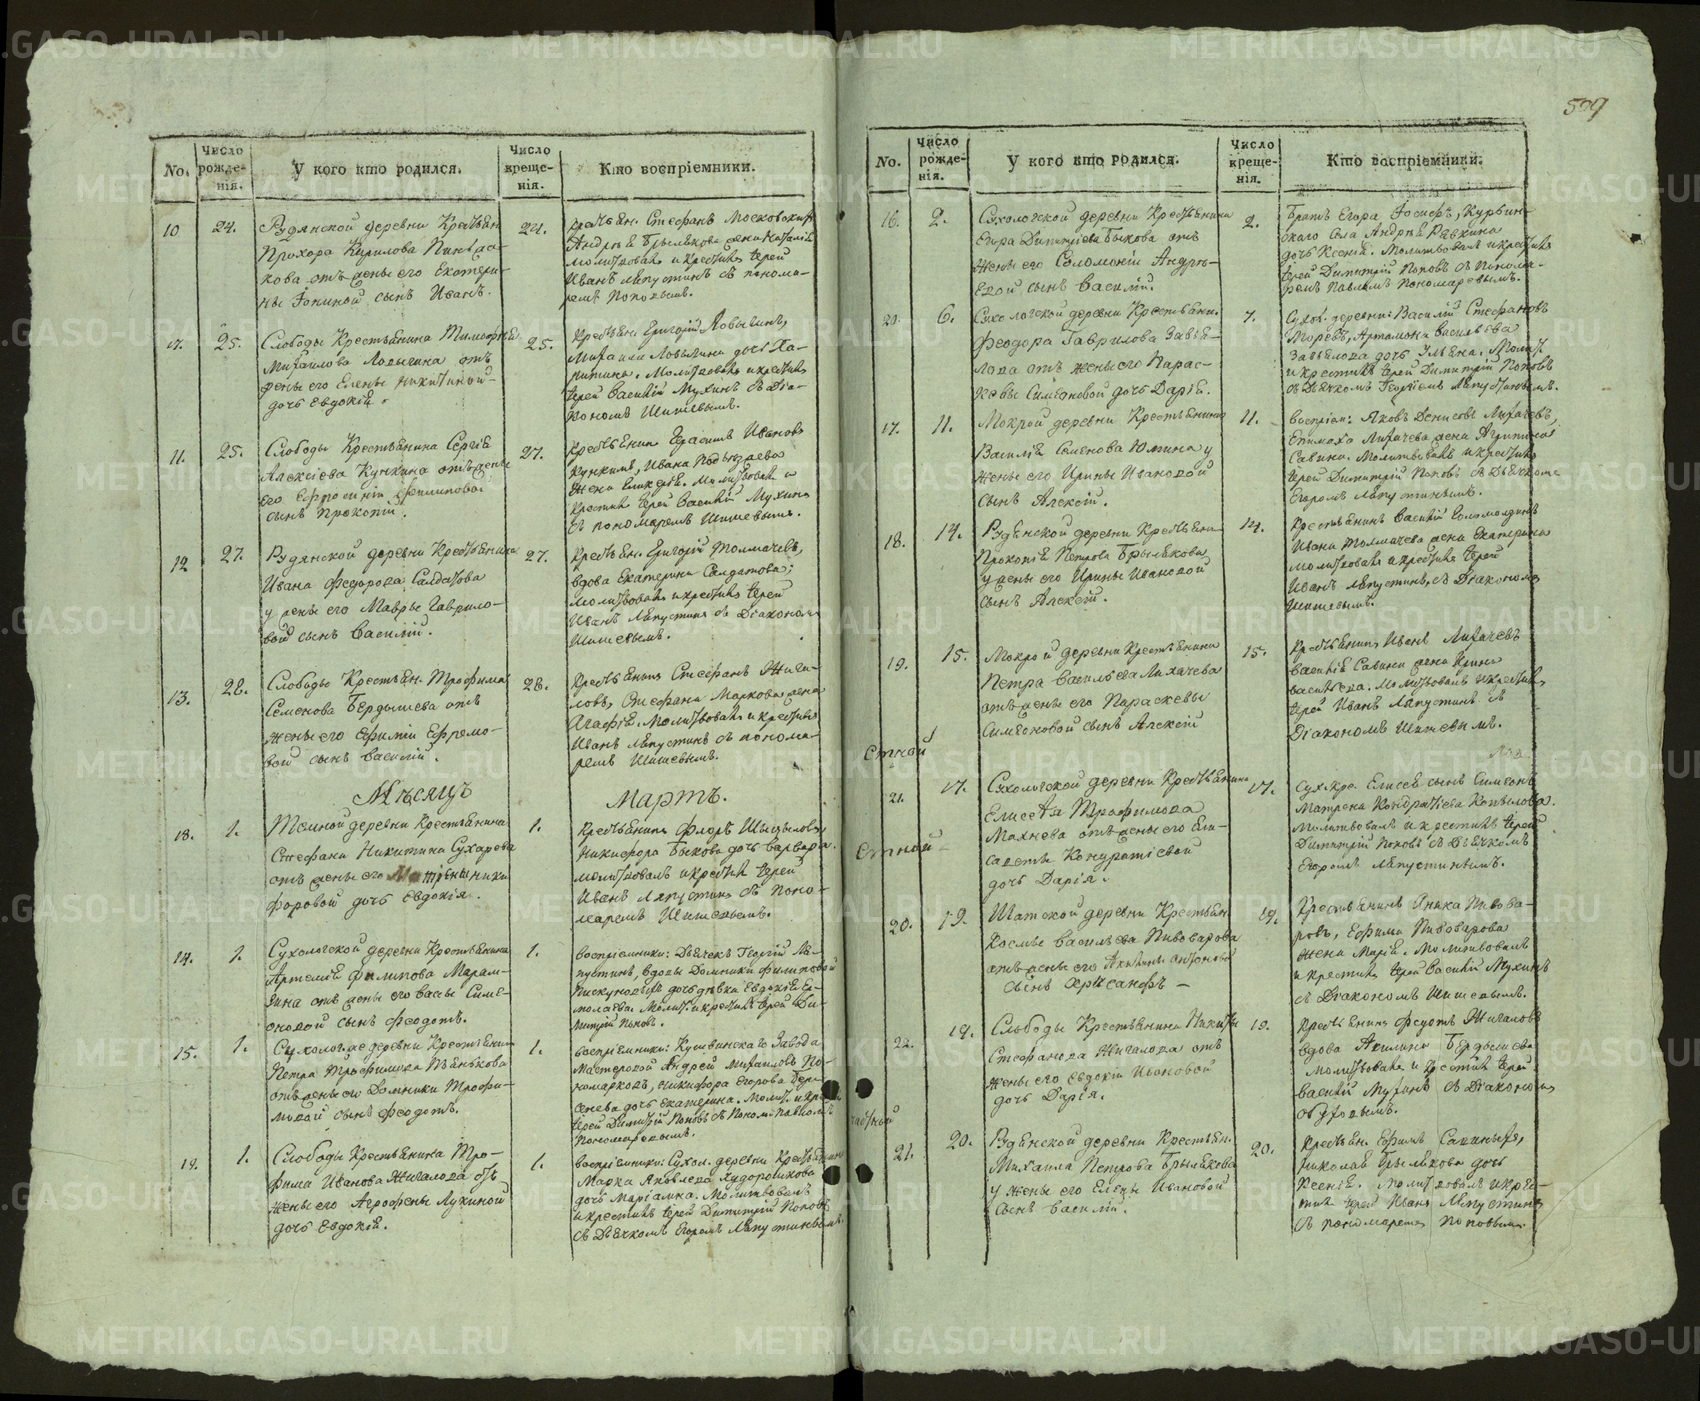 509
No.
Число рожде- нія.
У кого кто родился.
Число креще- нія.
Кто воспріемники.
10
24.
Рудянской деревни Крестьян
Прохора Кирилова
кова отъ жены его Екатери-
ны Фокиной сынъ Иванъ.
24.
Крестьян. Стефанъ Московскихъ
Андрея Брылякова жена Наталія
молитвовалъ и крестилъ Іерей
Иванъ Ляпустинъ съ понома-
ремъ Поповымъ.
25.
Слободы Крестьянина Тимофея
Михайлова Ловыгина отъ
жены его Елены Никитиной
дочь Евдокія.
25.
Крестьян. Григорій Ловыгинъ,
Михаила Ловыгина дочь Ха-
ритина. Молитвовалъ и крестилъ
Іерей Василій Мухинъ съ Діа-
кономъ Шишевымъ.
11.
25.
Слободы Крестьянина Сергія
Алексіева Кункина отъ жены
его Ефросиніи Филиповой
сынъ Прокопій.
27.
Крестьянинъ Герасимъ Ивановъ
Кункинъ, Ивана
жена Гликерія. Молитвовалъ и
крестилъ Іерей Василій Мухинъ
съ пономаремъ Шишевымъ.
12
27.
Рудянской деревни Крестьянина
Ивана Федорова Салдатова
у жены его Мавры Гаврило-
вой сынъ Василій.
27.
Крестьян. Григорій Толмачевъ,
вдова Екатерина Салдатова;
молитвовалъ и крестилъ Іерей
Иванъ Ляпустинъ съ Діакономъ
Шишевымъ.
13.
28.
Слободы Крестьян. Трофима
Семенова Бердышева отъ
жены его Ефиміи Ефремо-
вой сынъ Василій.
28.
Крестьянинъ Стефанъ Жига-
ловъ, Стефана Маркова жена
Агафія. Молитвовалъ и крестилъ
Иванъ Ляпустинъ съ понома-
ремъ Шишевымъ.
Мѣсяцъ Мартъ.
18.
1.
Темной деревни Крестьянина
Стефана Никитина Сухарева
отъ жены его
форовой дочь Евдокія.
1.
Крестьянинъ Флоръ
Никифора Быкова дочь Варвара.
молитвовалъ и крестилъ Іерей
Иванъ Ляпустинъ съ Поно-
маремъ Шишевымъ.
14.
1.
Сухологской деревни Крестьянина
Артемія Филипова
отъ жены его Вассы Симе-
оновой сынъ Феодотъ.
1.
Воспріемники: Дьячекъ Георгій Ля-
пустинъ, вдовы Домники Филиповой
дочь дѣвка Евдокія
Молитв. и крестилъ Іерей Ди-
митрій Поповъ.
15.
1.
Сухологс. деревни Крестьянина
Петра Трофимова Пѣнькова
отъ жены его Домники Трофи-
мовой сынъ Феодотъ.
1.
Воспріемники: Кушвинскаго Завода
Мастеровой Андрей Михайловъ По-
номарковъ, Никифора Егорова
дочь Екатерина. Молит. и крест.
Іерей Димитрій Поповъ съ Поном. Павломъ
Пономаревымъ.
19.
1.
Слободы Крестьянина Тро-
фима Иванова Жигалова отъ
жены его Агрофены Лукиной
дочь Евдокія.
1.
Воспріемники: Сухол. деревни Крестьянинъ
Марка Яковлева Худорошкова
дочь Маріамна. Молитвовалъ
и крестилъ Іерей Димитрій Поповъ
съ Дьячкомъ Егоромъ Ляпустинымъ.
No.
Число рожде- нія.
У кого кто родился.
Число креще- нія.
Кто воспріемники.
16.
2.
Сухологской деревни Крестьянина
Егора Димитріева Быкова отъ
жены его Соломоніи Андре-
евой сынъ Василій.
2.
Братъ Егора Іосифъ, Курьин-
скаго села Андрея
дочь Ксенія. Молитвовалъ и крестилъ
Іерей Димитрій Поповъ съ Понома-
ремъ Павломъ Пономаревымъ.
20.
6.
Сухологской деревни Крестьянин.
Феодора Гаврилова Завья-
лова отъ жены его Парас-
кевы Симеоновой дочь Дарія.
7.
Сухол. деревни: Василій Стефановъ
Артамона Васильева
Завьялова дочь Ульяна. Молит.
и крестилъ Іерей Димитрій Поповъ
съ Дьячкомъ Георгіемъ Ляпустинымъ.
17.
11.
Мокрой деревни Крестьянина
Василія Семенова Юшина у
жены его Ирины Ивановой
сынъ Алексій.
11.
Воспріем: Яковъ Денисовъ Лихачевъ,
Епимаха Лихачева жена Агрипина
Савина. Молитвовалъ и крестилъ
Іерей Димитрій Поповъ съ Дьячкомъ
Егоромъ Ляпустинымъ.
18.
14.
Рудянской деревни Крестьянин.
Прокопія Петрова Брылякова
у жены его Ирины Ивановой
сынъ Алексій.
14.
Крестьянинъ Василій
Ивана Толмачева жена Екатерина
молитвовалъ и крестилъ Іерей
Иванъ Ляпустинъ, съ Діакономъ
Шишевымъ.
19.
15.
Мокрой деревни Крестьянина
Петра Васильева Лихачева
отъ жены его Параскевы
Симеоновой сынъ Алексій
15.
Крестьянинъ Иванъ Лихачевъ
Василія Савина жена Ирина
Васильева. Молитвовалъ и крестилъ
Іерей Иванъ Ляпустинъ съ
Діакономъ Шишевымъ.
21.
17.
Сухологской деревни Крестьянина
Елисея Трофимова
Махнева отъ жены его Ели-
саветы Кондратіевой
дочь Дарія.
17.
Сух. кре. Елисея сынъ Симеонъ
Матрена Кондратіева Копылова.
молитвовалъ и крестилъ Іерей
Димитрій Поповъ съ Дьячкомъ
Егоромъ Ляпустинымъ.
20.
19.
Шатской деревни Крестьян.
Космы Васильева Пивоварова
отъ жены его Акилины Антоновой
сынъ Хрисанфъ —
19.
Крестьянинъ Аника Пивова-
ровъ, Ефима Пивоварова
жена Марія. Молитвовалъ
и крестилъ Іерей Василій Мухинъ
съ Діакономъ Шишевымъ.
22.
19.
Слободы Крестьянина Никиты
Стефанова Жигалова отъ
жены его Евдокіи Ивановой
дочь Дарія.
19.
Крестьянинъ Федотъ Жигаловъ
вдова Акилина Бердышева
Молитвовалъ и крестилъ Іерей
Василій Мухинъ съ Діакономъ
21.
20.
Рудянской деревни Крестьян.
Михаила Петрова Брылякова
у жены его Елены Ивановой
сынъ Василій.
20.
Крестьян. Ефимъ Савиныхъ,
Николая Брылякова дочь
Ксенія. Молитвовалъ и крес-
тилъ Іерей Иванъ Ляпустинъ
съ пономаремъ Поповымъ.
METRIKI.GASO-URAL.RU